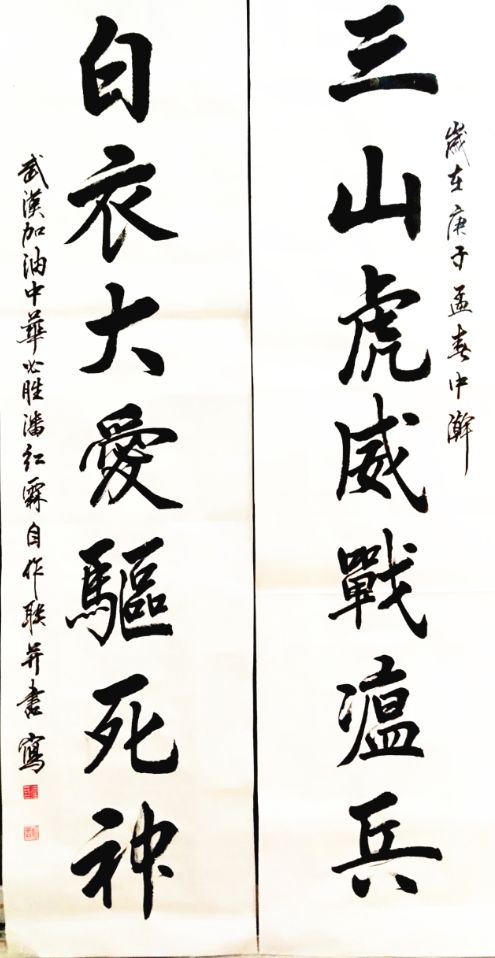 歲在庚子孟春中澣
三山虎威戰瘟兵
白衣大愛驅死神
武漢加油中華必胜潘红霖自作联并書寫